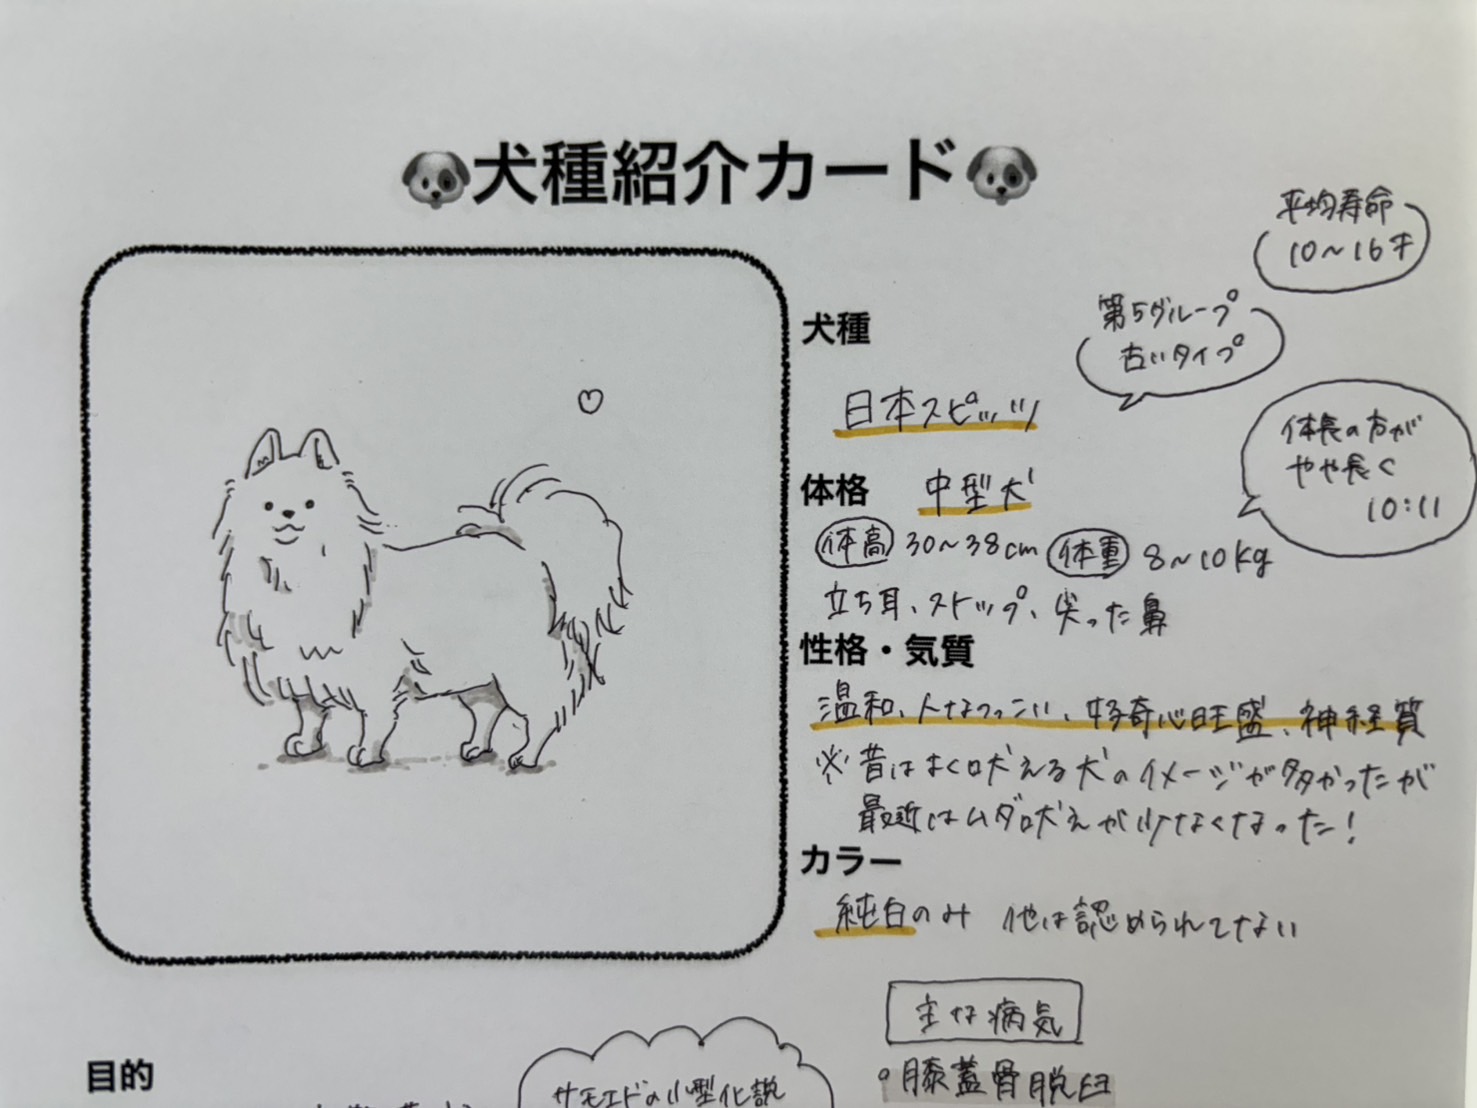 🐶犬種紹介カード🐶
平均寿命
10〜16才
犬種
第5グループ
古いタイプ
日本スピッツ
体格 中型犬
体長の方が
やや長く
10:11
体高 30〜38cm 体重 8〜10kg
立ち耳、ストップ、尖った鼻
性格・気質
温和、人なつっこい、好奇心旺盛、神経質
※昔はよく吠える犬のイメージが多かったが
最近はムダ吠えが少なくなった!
カラー
純白のみ 他は認められてない
主な病気
•膝蓋骨脱臼
目的
サモエドの小型化説